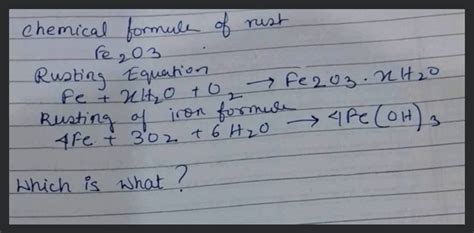 Chemical formule of rust
Fe2O3
Rusting Equation
Fe + xH2O + O2 → Fe2O3 . xH2O
Rusting of iron formule
4Fe + 3O2 + 6H2O → 4Fe(OH)3
Which is what?